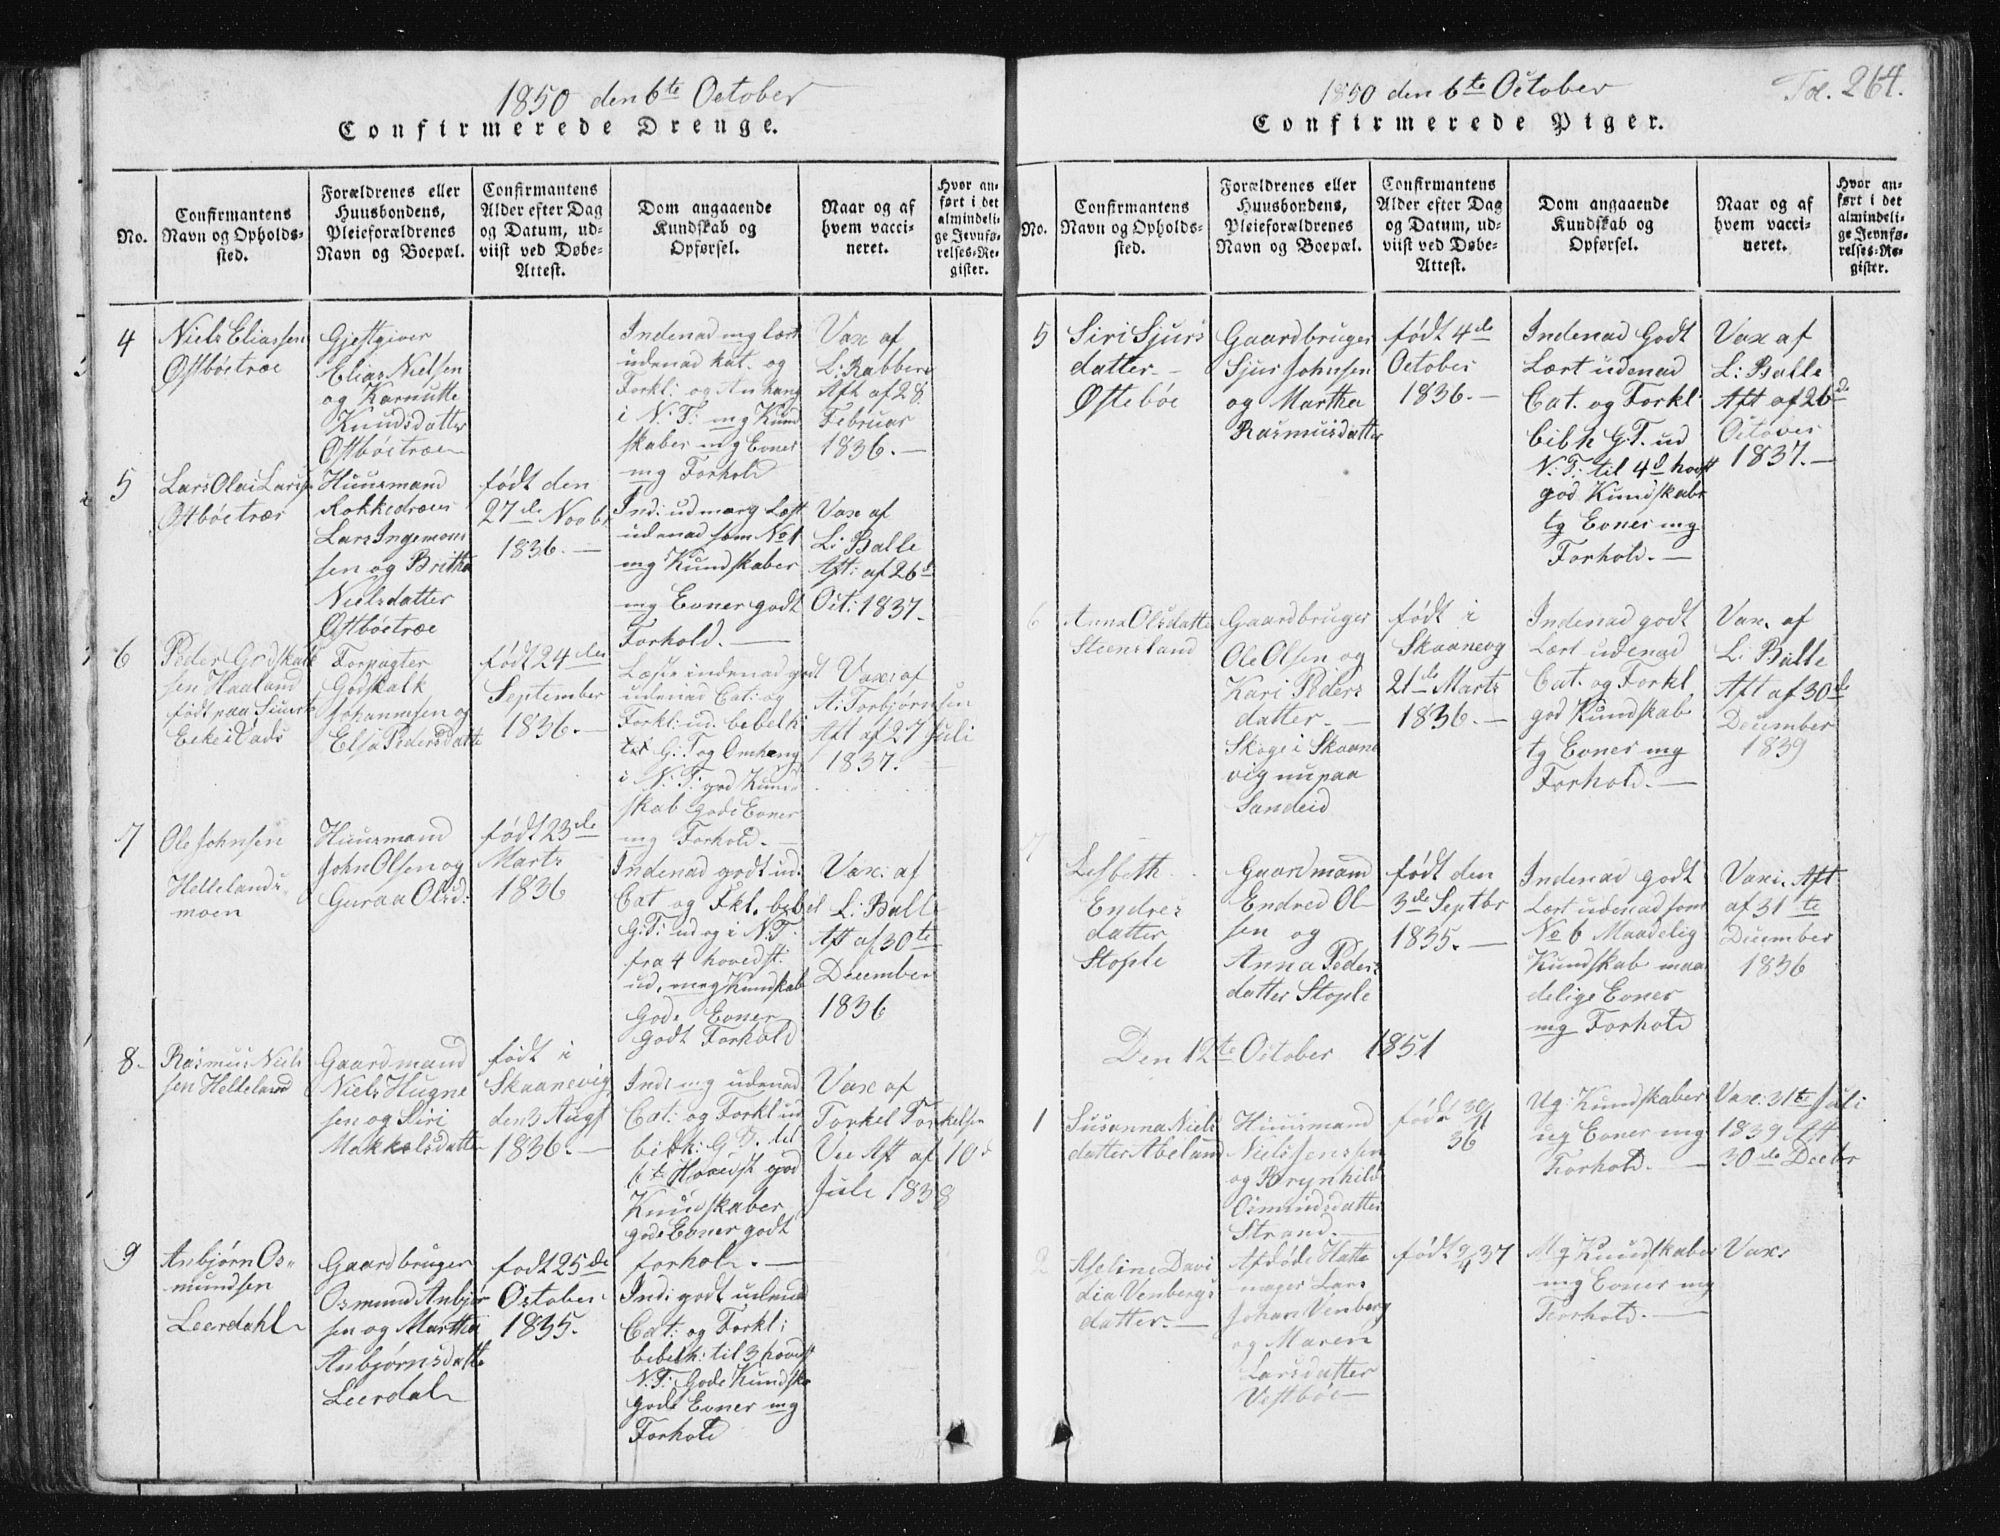 1850 den 6te October
Confirmerede Drenge.
No.
Confirmantens
Navn og Opholds-
sted.
Forældrenes eller
Huusbondens,
Pleieforældrenes
Navn og Boepæl.
Confirmantens
Alder efter Dag
og Datum, ud-
viist ved Døbe-
Attest.
Dom angaaende
Kundskab og
Opførsel.
Naar og af
hvem vacci-
neret.
Hvor an-
ført i det
almindeli-
ge Jevnfø-
relses-Re-
gister.
4
Niels Eliassen
Østbøetræe
Gjestgiver
Elias Nielsen
og Karnutte
Knudsdatter
Østbøetræe
Indenad mg lært
udenad kat. og
Forkl: og Anhang
i N. T: mg Kund
skaber mg Evner
mg Forhold
Vax af
L: Rabberg
Aft af 28
Februar
1836. —
5
Lars Olai Larss
Ostbøetræe
Huusmand
Rokkedreier
Lars Ingemons
sen og Britha
Nielsdatter
Østbøetræe
født den
27de Novbr
1836. —
Ind: ud marg Lost
udenad som No 1
mg Kundskaber
mg Evner godt
Forhold. —
Vax af
L: Balle
Aft: af 26d
Oct: 1837. —
6
Peder Godskalk
sen Haaland
født paa
Eeke i Vads
Forpagter
Godskalk
Johannesen og
Elsa Pedersdatte
født 24de
September
1836. —
Læste indenad godt
udenad Cat: og
Forkl: ud. bebelh:
G: T og Omhang
i N. T: god Kund
skab gode Evner
mg Forhold. —
Vax: af
A: Torbjørnsen
Aft af 27 Juli
1837. —
7
Ole Johnsen
Hellelands
moen
Huusmand
John Olsen og
Guraa Olsd:
født 23de
Marts
1836
Indenad godt ud:
Cat og Fkl. bebel
G: T: ud og i N: T.
fra 4 hovedst:
ud, meg Kundskab
Gode Evner
godt Forhold
Vax: af
L: Balle
Aft af 30te
December
1836
8-
Rasmus Niel
sen Helleland
Gaardmand
Niels Hugne
sen og Siri
Makkelsdatte
født i
Skaanevig
den 3 Augs
1836. —
Ind: mg udenad
Cat: og Forkl ud
bibk: G T. til
6te Hovedst god
Kundskaber
gode Evner godt
forhold. —
Vax af
Torkel Torkelsen
Vee Aft af 10d
Juli 1838
9
Anbjørn Os-
mundsen
Leerdahl
Gaardbruger
Osmund Anbjør
sen og Martha
Anbjørnsdatte
Leerdal
født 25de
October
1835.
Ind: godt udenad
Cat: og Forkl:
bebelh: til 3 hovedst
N. T: Gode Kundska
gode Evner mg
Forhold
1850 den 6te October
Fol. 264.
Confirmerede Piger.
No.
Confirmantens
Navn og Opholds-
sted.
Forældrenes eller
Huusbondens,
Pleieforældrenes
Navn og Boepæl.
Confirmantens
Alder efter Dag
og Datum, ud-
viist ved Døbe-
Attest.
Dom angaaende
Kundskab og
Opførsel.
Naar og af
hvem vacci-
neret.
Hvor an-
ført i det
almindeli-
ge Jevnfø-
relses-Re-
gister.
5
Siri Sjurs
datter —
Østebøe
Gaardbruger
Sjur Johnsen
og Martha
Rasmusdatter
født 4de
October
1836. —
Indenad Godt
Lært udenad
Cat. og Forkl
bibh G. T. ud
N. T: til 4d hovst
god Kundskabr
tg Evner mg
Forhold. —
Vax af
L: Balle
Aft af 26de
October
1837. —
6
Anna Olsdatte
Steensland
Gaardbruger
Ole Olsen og
Kari Peders
datter. —
Skoge i Skaane
vig nu paa
Sandeid
født i
Skaanevg
21de Marts
1836. —
Indenad godt
Lært udenad
Cat. og Forkl
god Kundskab
tg Evner mg
Forhold. —
Vax. af
L: Balle
Aft af 30de
December
1839
7
Lisbeth
Endres
datter
Stople
Gaardmand
Endred Ol
sen og
Anna Peders
datter Stople
født den
3de Septbr
1835. —
Indenad godt
Lært udenad som
No 6 Maadelig
Kundskab maa
delige Evner
mg Forhold
Vaxi. Aft
af 31te
December
1836
Den 12te October 1851
1
Susanna Niels
datter Abeland
Huusmand
Niels Jenssen
og Brynhild
Osmundsdatter
Strand. —
født 30/11
36
Ug: Kundskaber
ug Evner mg
Forhold. —
Vax: 31te Juli
1839 Aft
30de Decbr
2
Aseline Davi
dia Venbergs
datter. —
Afdøde Hatte
mager Lars
Johan Venberg
og Maren
Larsdatter
Vestbøe —
født 9/4 37
Mg Kundskaber
mg Evner mg
Forhold. —
Vax: